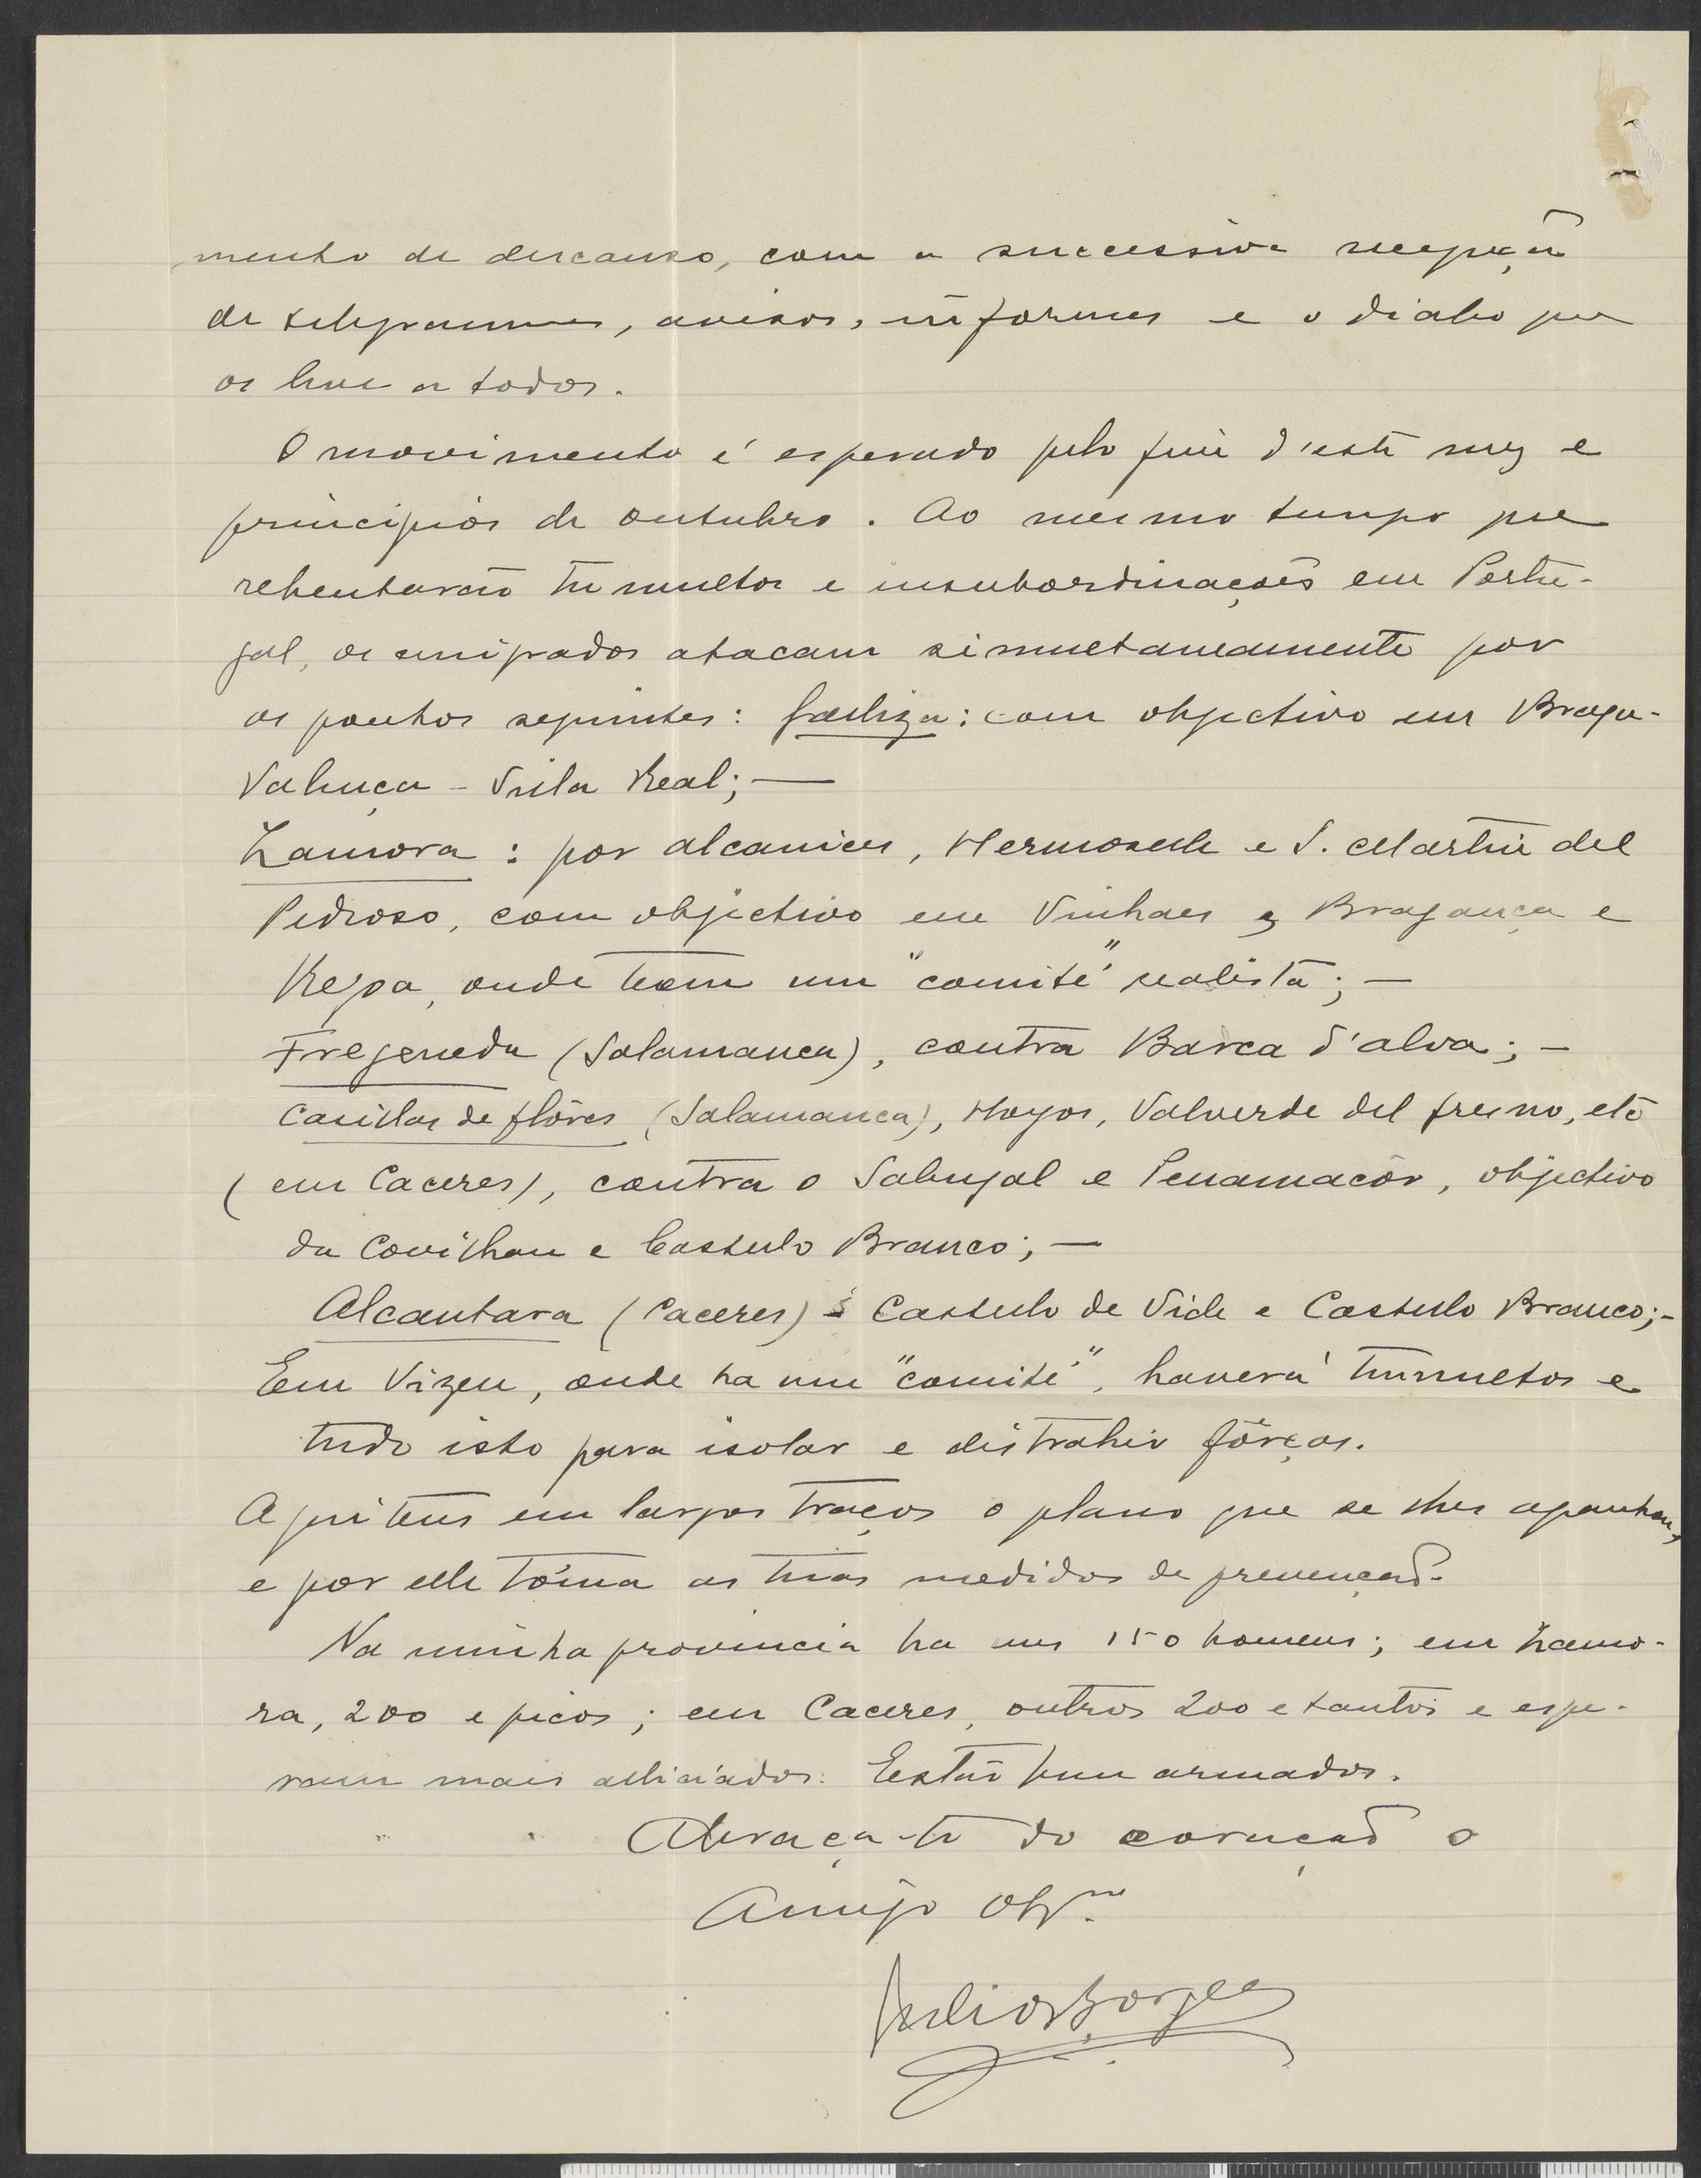 mento de descanso, com a successiva recepção
de telegrammas, avisos, informes e o diabo que
os leve a todos.
O movimento é esperado pelo fim d'este mez e
principios de outubro. Ao mesmo tempo que
rebentarão tumultos e insubordinações em Portu-
gal, os emigrados atacam simultaneamente por
os pontos seguintes: Galliza: com objectivo em Braga-
Valença - Vila Real; —
Zamora: por Alcanices, Hermoselle e S. Martin del
Pedroso, com objectivo em Vinhaes, Bragança e
Regoa, onde teem um "comité" realista; —
Fregeneda (Salamanca), contra Barca d'alva; —
Casillas de flôres (Salamanca), Hoyos, Valverde del fresno, etc
(em Caceres), contra o Sabugal e Penamacôr, objectivo
da Covilhan e Castello Branco; —
Alcantara (Caceres) á Castello de Vide e Castello Branco; -
Em Vizeu, onde ha um "comité", haverá tumultos e
tudo isto para isolar e distrahir fôrças.
Aqui tens em largos traços o plano que se lhes apanhou,
e por elle tóma as tuas medidas de prevenção.
Na minha provincia ha uns 150 homens; em Zamo-
ra, 200 e picos; em Caceres, outros 200 e tantos e espe-
ram mais alliciados. Estão bem armados.
Abraça-te do coração o
Amigo Obg.mo
Julio Borges